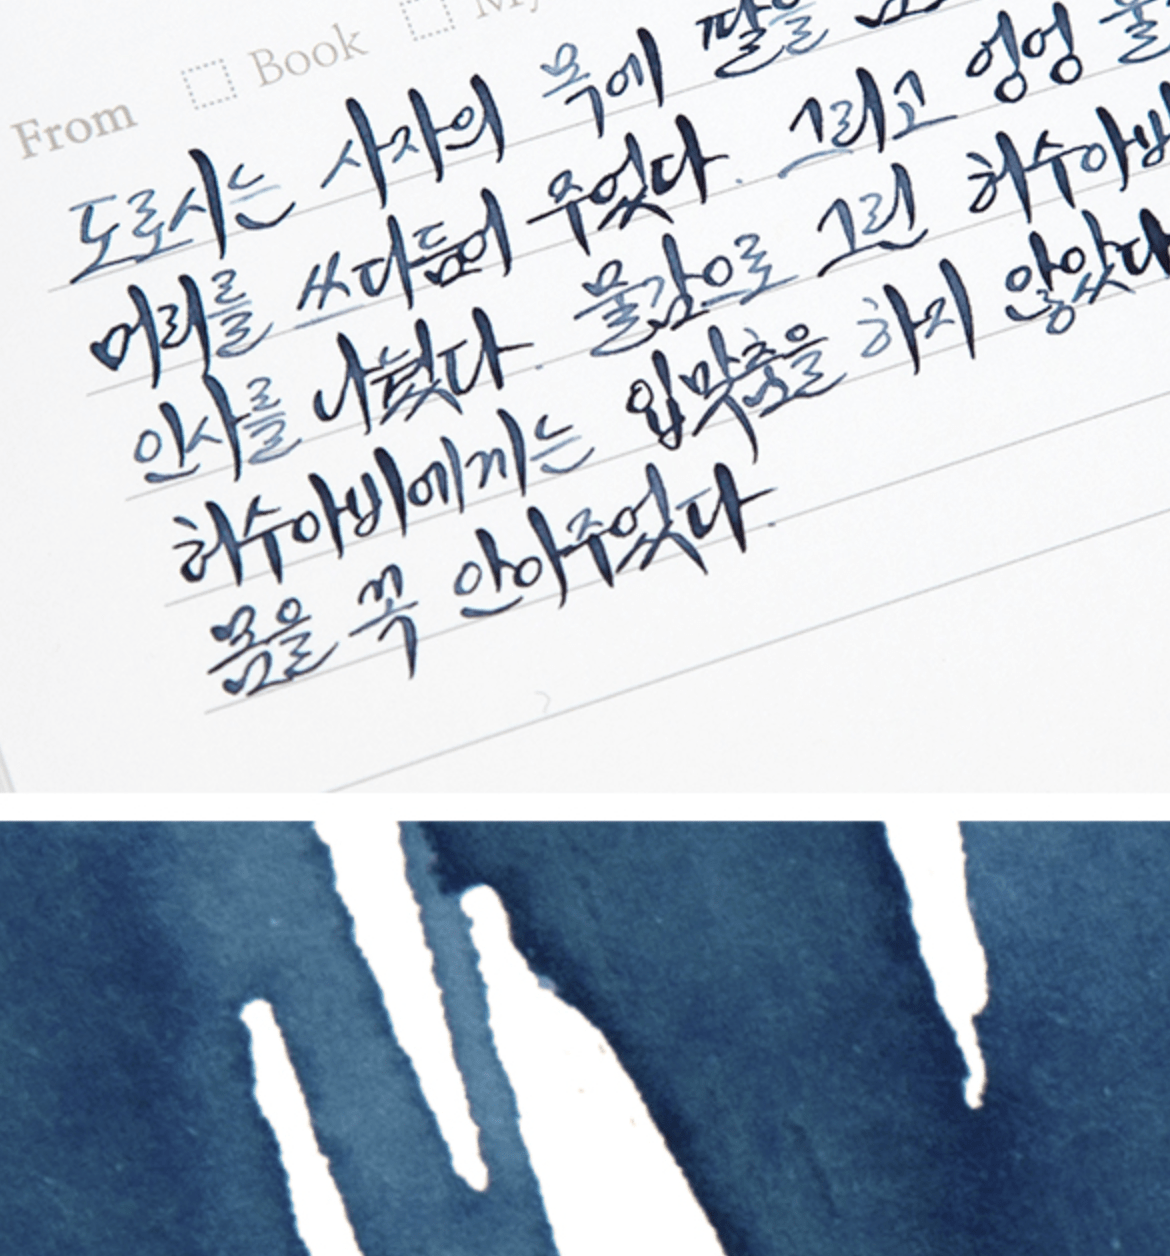 Book
From
도로시는 사자의 목에 팔을
머리를 쓰다듬어 주었다. 그리고 엉엉 울
인사를 나눴다. 물감으로 그린 허수아비
허수아비에게는 입맞춤을 하지 않았다
몸을 꼭 안아주었다.